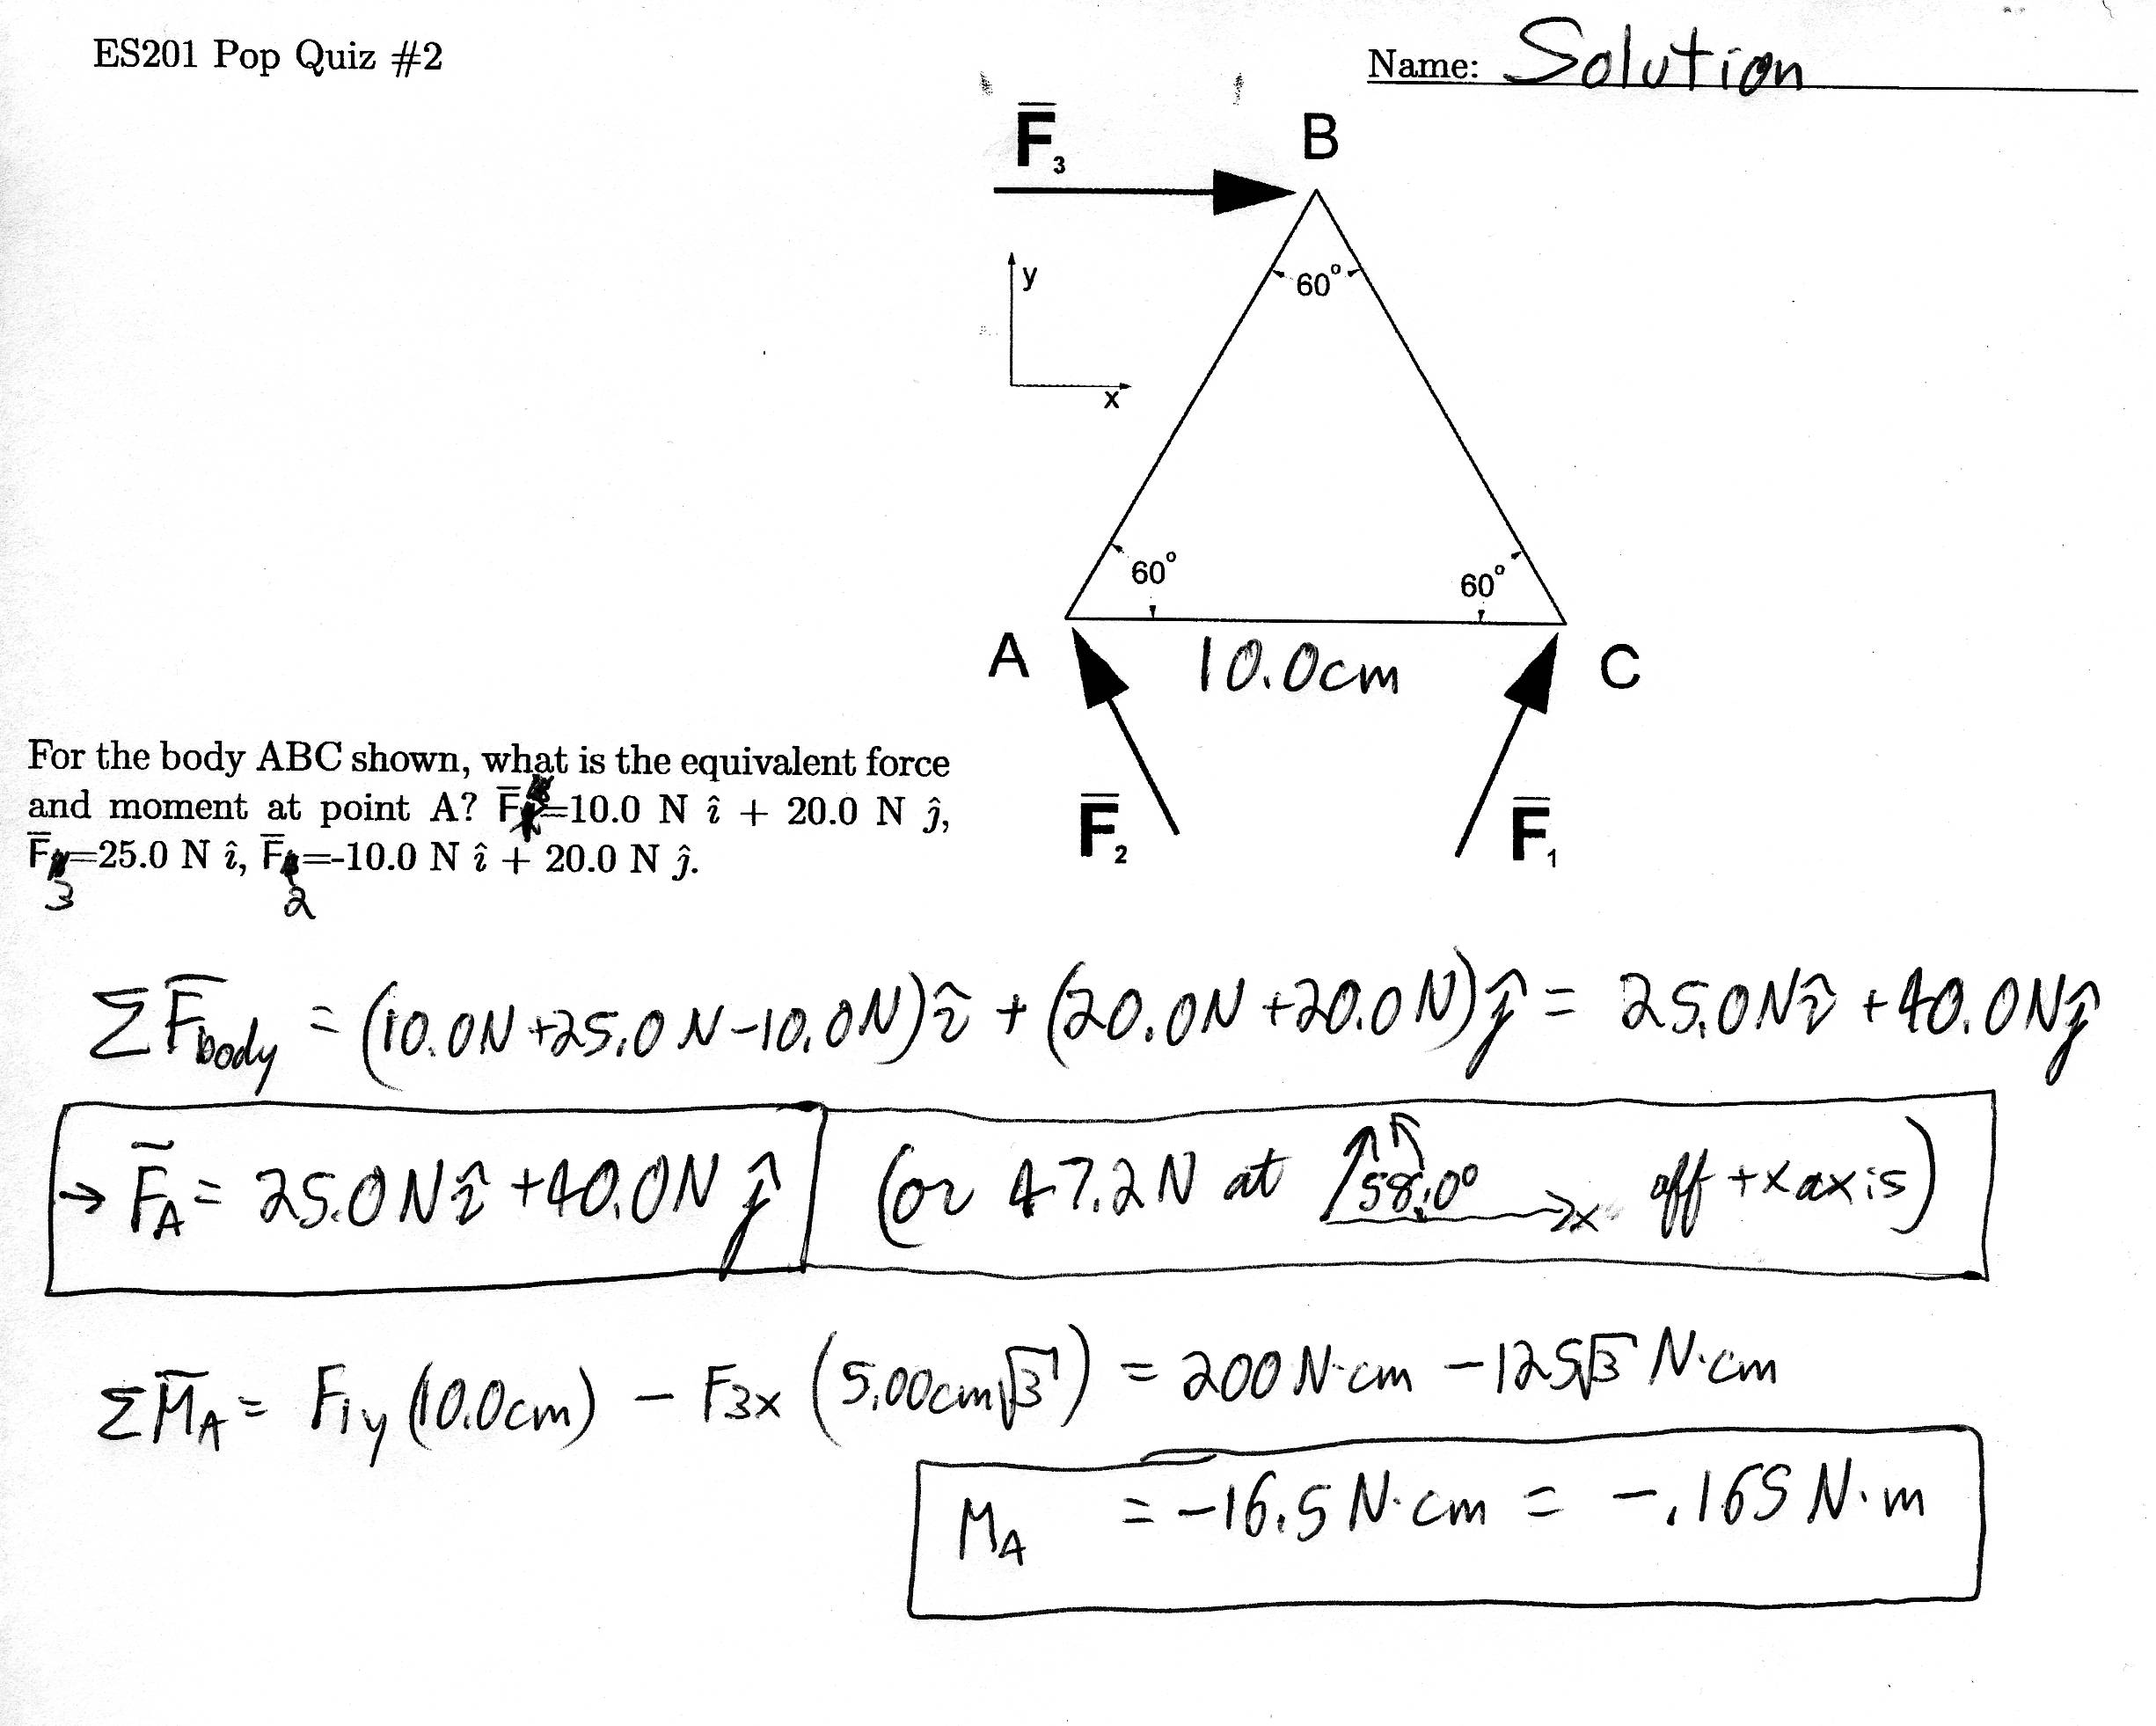 ES201 Pop Quiz #2
Name: Solution
F̅₃
B
y
x
60°
60°
60°
A
10.0cm
C
F̅₂
F̅₁
For the body ABC shown, what is the equivalent force
and moment at point A? F̅₁=10.0 N î + 20.0 N ĵ,
F̅₃=25.0 N î, F̅₂=-10.0 N î + 20.0 N ĵ.
ΣF̅body = (10.0N+25.0N-10.0N)î + (20.0N+20.0N)ĵ = 25.0Nî +40.0Nĵ
→ F̅A = 25.0Nî +40.0Nĵ (or 47.2N at 58.0° x off +x axis)
ΣM̅A = F1y(10.0cm) - F3x(5.00cm√3) = 200N·cm -125√3 N·cm
MA = -16.5 N·cm = -.165 N·m